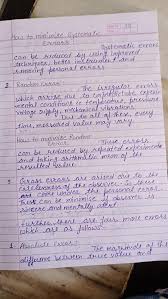 How to minimise Systematic
Errors
Systematic errors
can be reduced by using improved
techniques, better instruments and
removing personal errors
2. Random Errors : The irregular errors
which arises due to unpredictable
mental conditions ie temperature, pressure
voltage supply, mechanical vibrations
Due to all of these, every
time, measured value may vary.
How to minimise Random
Errors : These errors
can be reduced by repeated experiments
and taking arithmetic mean of the
resulted
Gross errors are arised due to the
carelessness of the observer. So these
are come under the personal error.
These can be minimise if observer is
sincere and mentally alert
Further, there are four more errors
which are as follows:
1. Absolute Errors : The magnitude of the
difference between true value and